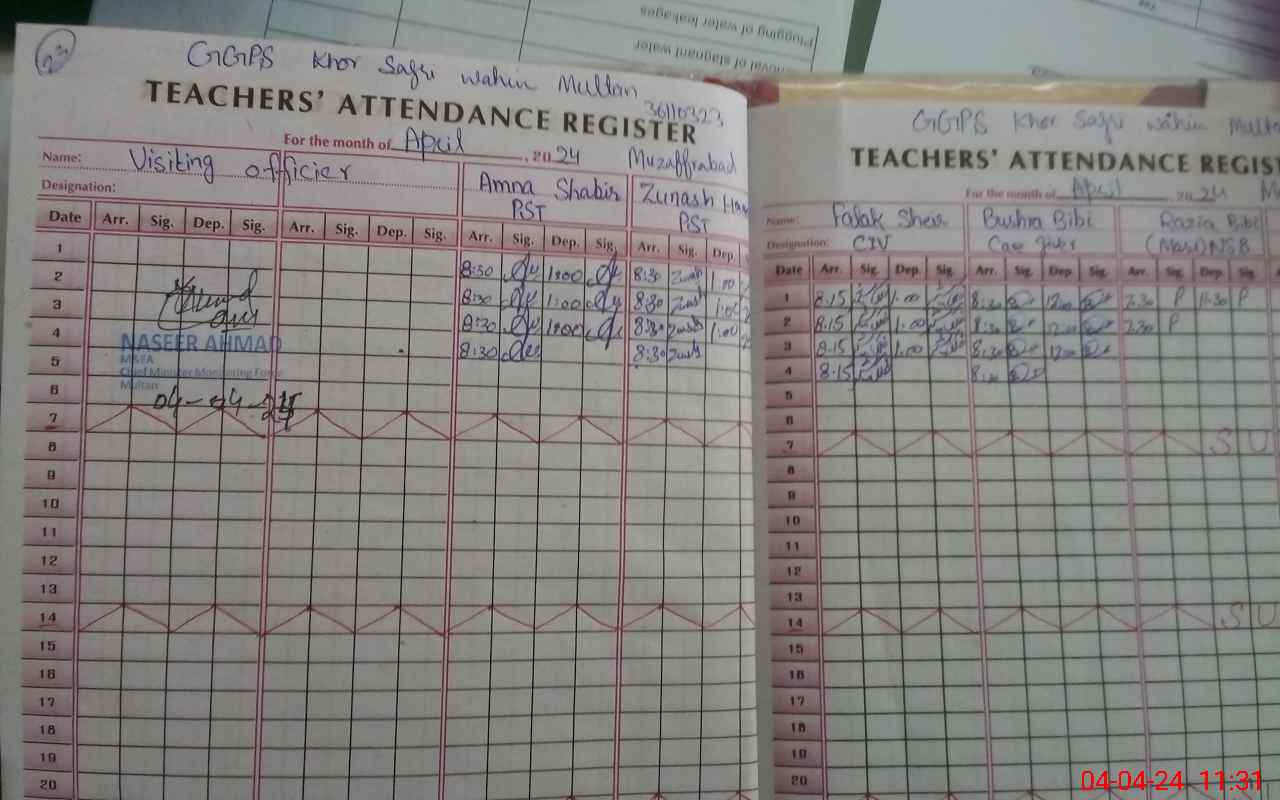 Plugging of water leakages
of stagnant water
23
GGPS Khor Safri wahin Multan
36110323
TEACHERS' ATTENDANCE REGISTER
For the month of April, 2024 Muzaffrabad
Name: Visiting officier Amna Shabir Zunash
Designation: PST PST
Date Arr. Sig. Dep. Sig. Arr. Sig. Dep. Sig. Arr. Sig. Dep. Sig. Arr. Sig. Dep.
1 8:30 1:00 8:30 1:00
2 8:30 1:00 8:30 1:00
3 8:30 1:00 8:30 1:00
4 8:30 8:30
NASEER AHMAD
MEA
Chief Minister Monitoring Force
Multan
5
6
04-04-24
7
8
9
10
11
12
13
14
15
16
17
18
19
20
GGPS Khor Safri wahin
TEACHERS' ATTENDANCE
For the month of April 2024
Name: Falak Sher Bushra Bibi Razia Bibi
Designation: CIV Care giver (Masi) NSB
Date Arr. Sig. Dep. Sig. Arr. Sig. Dep. Sig. Arr. Sig. Dep. Sig.
1 8:15 1:00 8:30 12:00 7:30 P 11:30 P
2 8:15 1:00 8:30 12:00 7:30 P
3 8:15 1:00 8:30 12:00
4 8:15 8:30
5
6
7 S U
8
9
10
11
12
13
14 S U
15
16
17
18
19
20
04-04-24 11:31